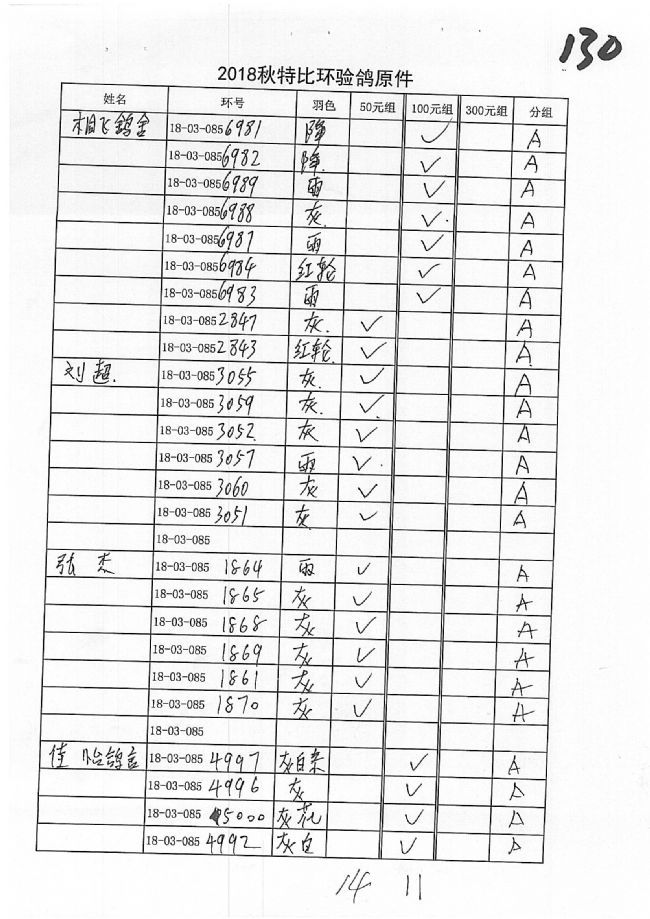 130
2018秋特比环验鸽原件
姓名 环号 羽色 50元组 100元组 300元组 分组
相飞鸽舍 18-03-0856981 降 ✓ A
18-03-0856982 降. ✓ A
18-03-0856989 雨 ✓ A
18-03-0856988 灰 ✓. A
18-03-0856987 雨 ✓ A
18-03-0856984 红轮 ✓ A
18-03-0856983 雨 ✓ A
18-03-0852847 灰. ✓ A
18-03-0852843 红轮. ✓ A
刘超. 18-03-0853055 灰. ✓ A
18-03-0853059 灰. ✓ A
18-03-0853052. 灰 ✓ A
18-03-0853057 雨 ✓. A
18-03-0853060 灰 ✓ A
18-03-0853051 灰 ✓ A
18-03-085
张杰 18-03-085 1864 雨 ✓ A
18-03-085 1865 灰 ✓ A
18-03-085 1868 灰 ✓ A
18-03-085 1869 灰 ✓ A
18-03-085 1861 灰 ✓ A
18-03-085 1870 灰 ✓ A
18-03-085
佳怡鸽舍 18-03-085 4997 灰白条 ✓ A
18-03-085 4996 灰 ✓ A
18-03-085 5000 灰花 ✓ A
18-03-085 4992 灰白 ✓ A
14 11